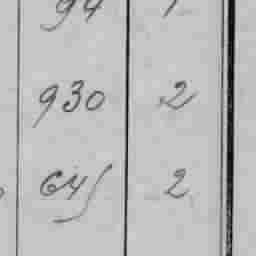 94 1
930 2
645 2